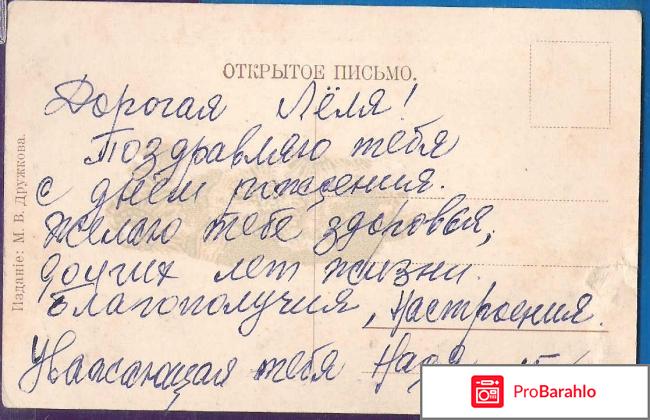 ОТКРЫТОЕ ПИСЬМО.
Дорогая Лёля!
Поздравляю тебя
с днём рождения.
Желаю тебе здоровья,
долгих лет жизни.
Благополучия, Настроения.
Уважающая тебя Надя
Изданіе: М. В. Дружкова.
ProBarahlo